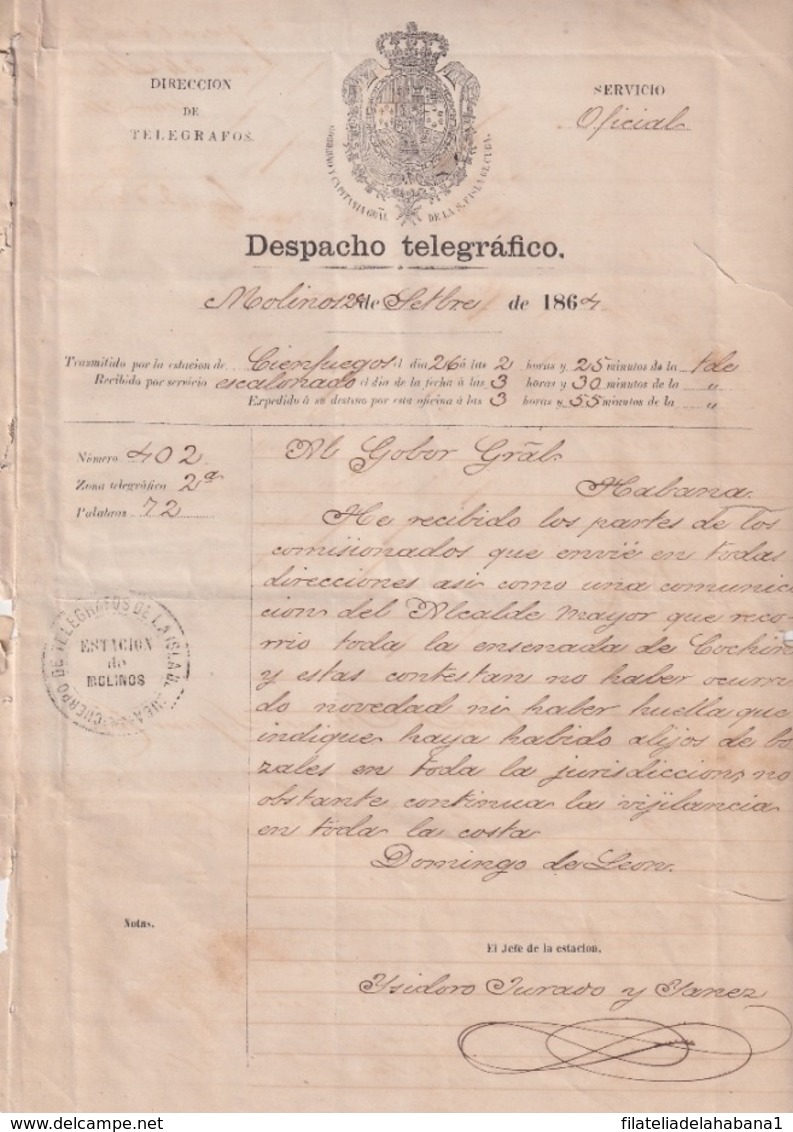 DIRECCION
DE
TELEGRAFOS.
SERVICIO
Oficial
GOBIERNO Y CAPITANIA GRAL. DE LA S. F. ISLA DE CUBA.
Despacho telegráfico.
Molinos de Setbre de 1864
Trasmitido por la estacion de Cienfuegos el dia 26 á las 2 horas y 25 minutos de la tde
Recibido por servicio escalonado el dia de la fecha á las 3 horas y 30 minutos de la "
Expedido á su destino por esta oficina á las 3 horas y 55 minutos de la "
Número 402
Zona telegráfica 2ª
Palabras 72
Al Gobor Grãl
Habana
He recibido los partes de los
comisionados que envié en todas
direcciones asi como una comunic
cion del Alcalde mayor que reco
rrio toda la ensenada de Cochin
y estas contestan no haber ocurri
do novedad ni haber huella que
indique haya habido alijos de bo
zales en toda la jurisdiccion, no
obstante continua la vijilancia
en toda la costa
Domingo de Leon.
CUERPO DE TELEGRAFOS DE LA ISLA DE CUBA
ESTACION
de
MOLINOS
Notas.
El Jefe de la estacion,
Ysidoro Jurado y Yanez
filateliadelahabana1